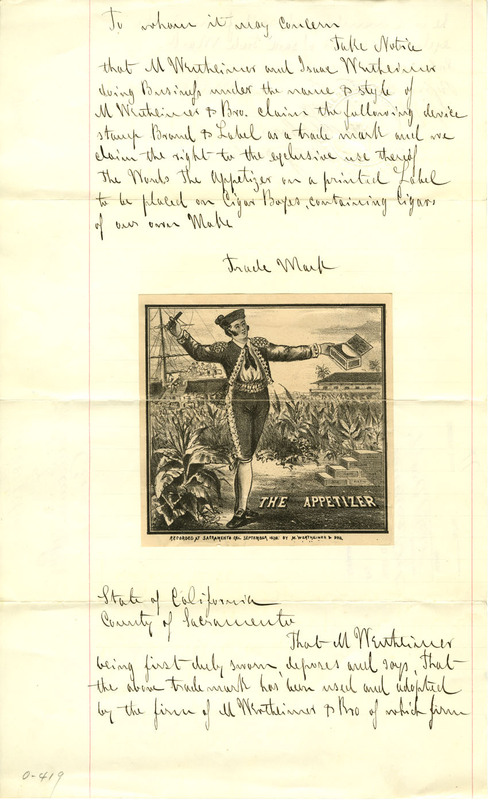 To whom it may concern
Take Notice
that M Wertheimer and Isaac Wertheimer
doing Business under the name & style of
M Wertheimer & Bro. claim the following device
stamp Brand & Label as a trade mark and we
claim the right to the exclusive use thereof
The Words The Appetizer on a printed Label
to be placed on Cigar Boxes, containing Cigars
of our own Make
Trade Mark
THE APPETIZER
RECORDED AT SACRAMENTO CAL. SEPTEMBER, BY M. WERTHEIMER & BRO.
State of California
County of Sacramento
That M Wertheimer
being first duly sworn, deposes and says, That
the above trade mark has been used and adopted
by the firm of M Wertheimer & Bro of which firm
0-419